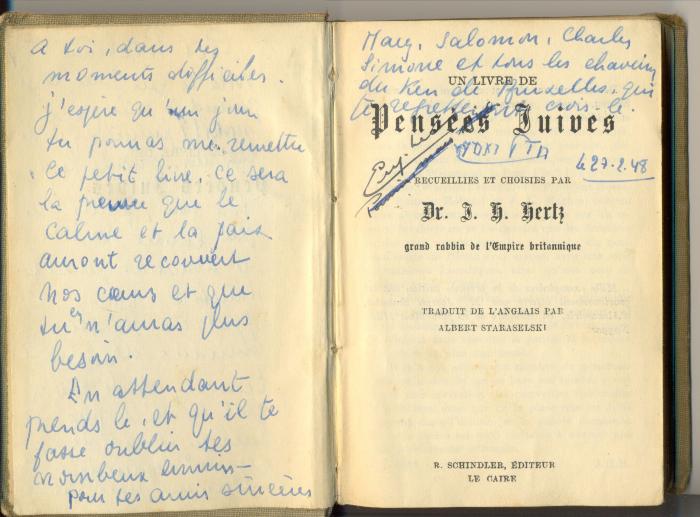 A toi, dans tes
moments difficiles.
j'espère qu'un jour
tu pourras me remettre
ce petit livre, ce sera
la preuve que le
calme et la paix
auront recouvert
nos cœurs et que
tu n'en auras plus
besoin.
En attendant
prends le, et qu'il te
fasse oublier tes
nombreux ennuis
pour tes amis sincères
Mary, Salomon, Charles
Simone et tous les chaverim
du Ken de Bruxelles, qui
te regretteront crois-le.
UN LIVRE DE
Pensées Juives
le 27.2.48
RECUEILLIES ET CHOISIES PAR
Dr. J. H. Hertz
grand rabbin de l'Empire britannique
TRADUIT DE L'ANGLAIS PAR
ALBERT STARASELSKI
R. SCHINDLER, ÉDITEUR
LE CAIRE